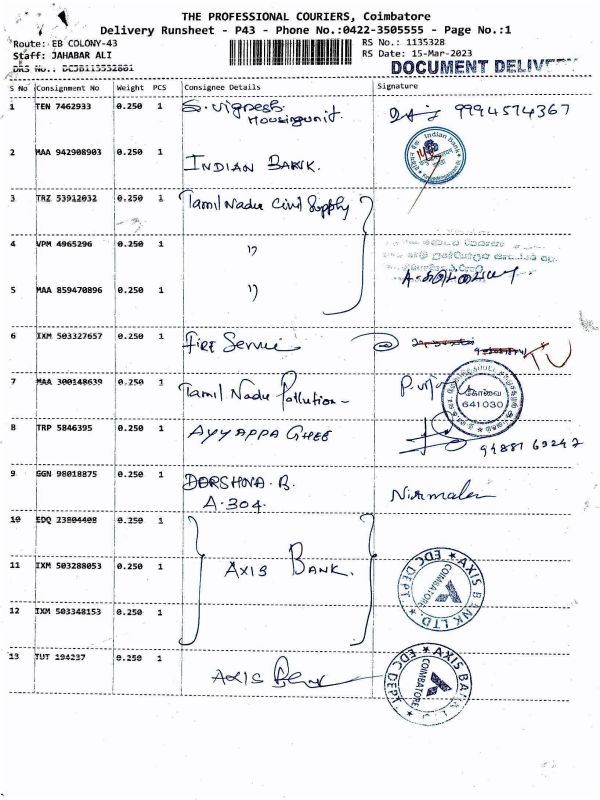 THE PROFESSIONAL COURIERS, Coimbatore
Delivery Runsheet - P43 - Phone No.:0422-3505555 - Page No.:1
Route: EB COLONY-43
RS No.: 1135328
Staff: JAHABAR ALI
RS Date: 15-Mar-2023
DOCUMENT DELIVERY
S No Consignment No Weight PCS Consignee Details Signature
1 TEN 7462933 0.250 1 S. Vignesh 9994574367
Housing unit.
2 MAA 942908903 0.250 1 INDIAN BANK.
Indian Bank
3 TRZ 53912032 0.250 1 Tamil Nadu Civil Supply
4 VPM 4965296 0.250 1 "
5 MAA 859470896 0.250 1 "
6 IXM 503327657 0.250 1 Fire Service
TV
7 MAA 300148639 0.250 1 Tamil Nadu Pollution-
கோவை
641030
8 TRP 5846395 0.250 1 AYYAPPA GHEE
9 GGN 98018875 0.250 1 DARSHNA. B. Nirmala
A-304.
10 EDQ 23804408 0.250 1
11 IXM 503288053 0.250 1 AXIS BANK.
AXIS BANK LTD. EDC DEPT.
COIMBATORE
12 IXM 503348153 0.250 1
13 TUT 194237 0.250 1 AXIS Bank
AXIS BANK EDC DEPT.
COIMBATORE